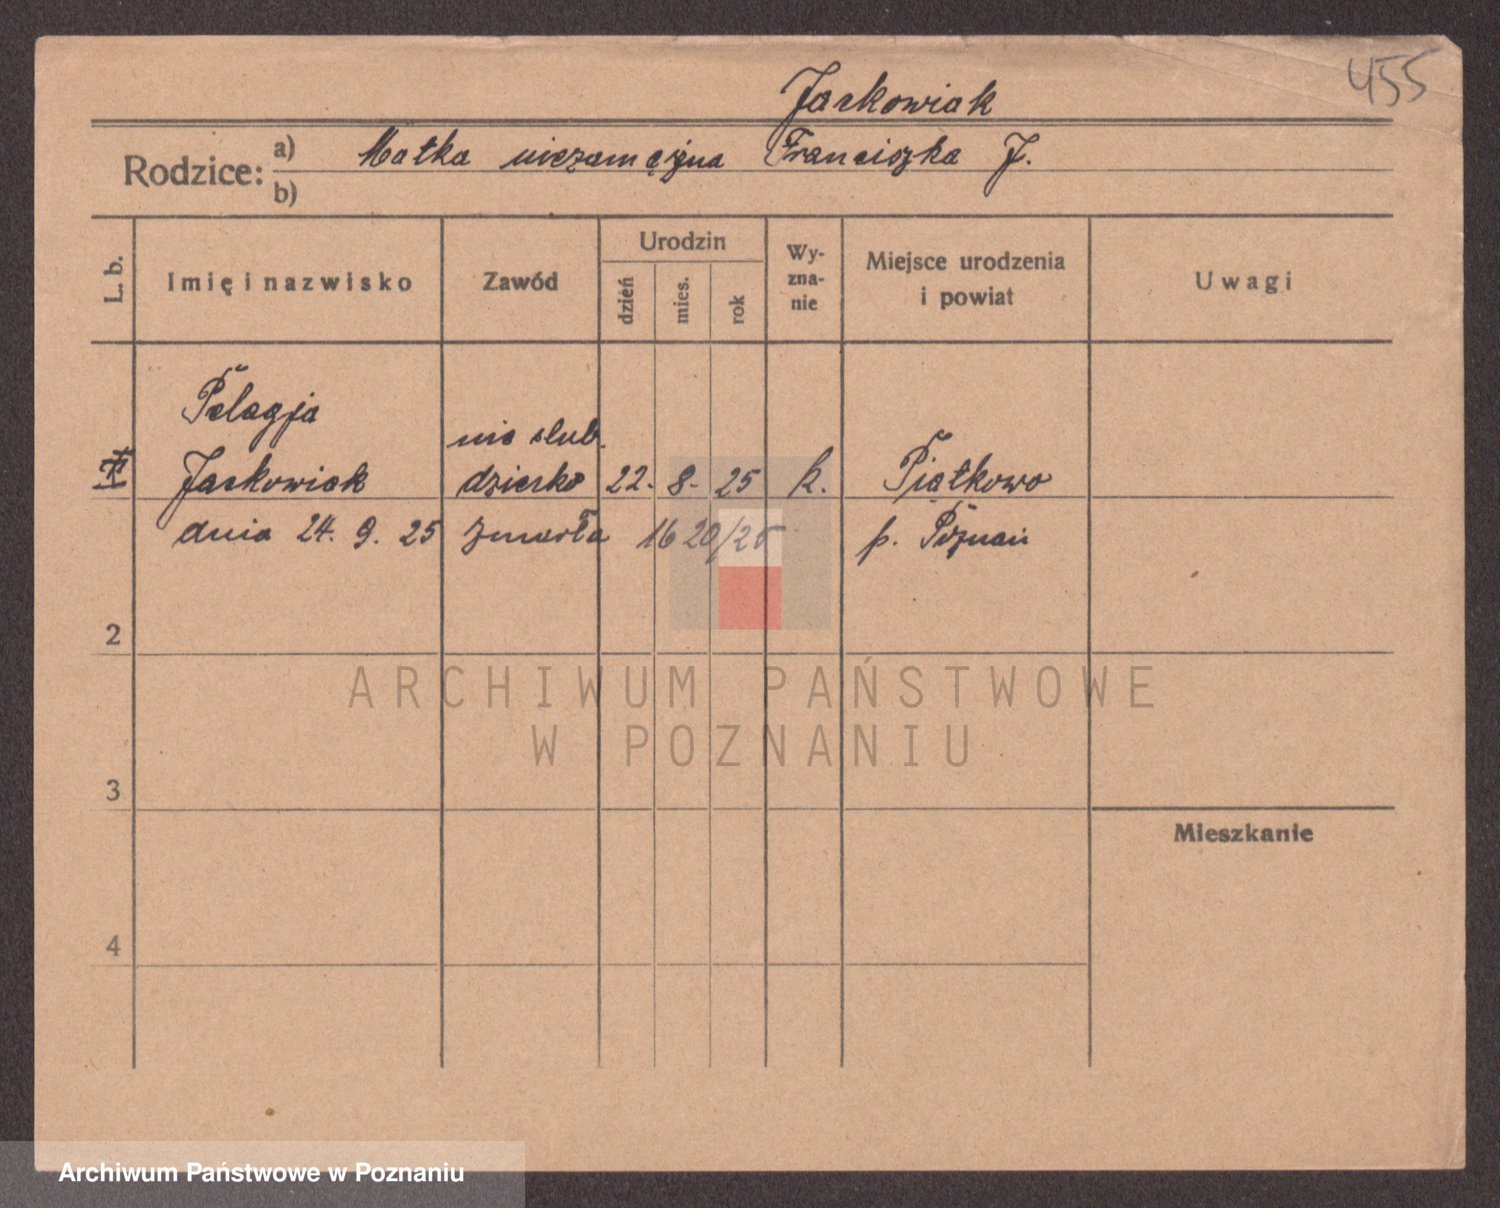 455
Jackowiak
Rodzice: a) Matka niezamężna Franciszka J.
b)
L. b. Imię i nazwisko Zawód Urodzin dzień mies. rok Wy-zna-nie Miejsce urodzenia i powiat Uwagi
Pelagja
nieślub.
1 Jackowiak dziecko 22. 8. 25 k. Piątkowo
dnia 24. 9. 25 zmarła 16 20/25 p. Poznań
2
3
Mieszkanie
4
ARCHIWUM PAŃSTWOWE
W POZNANIU
Archiwum Państwowe w Poznaniu